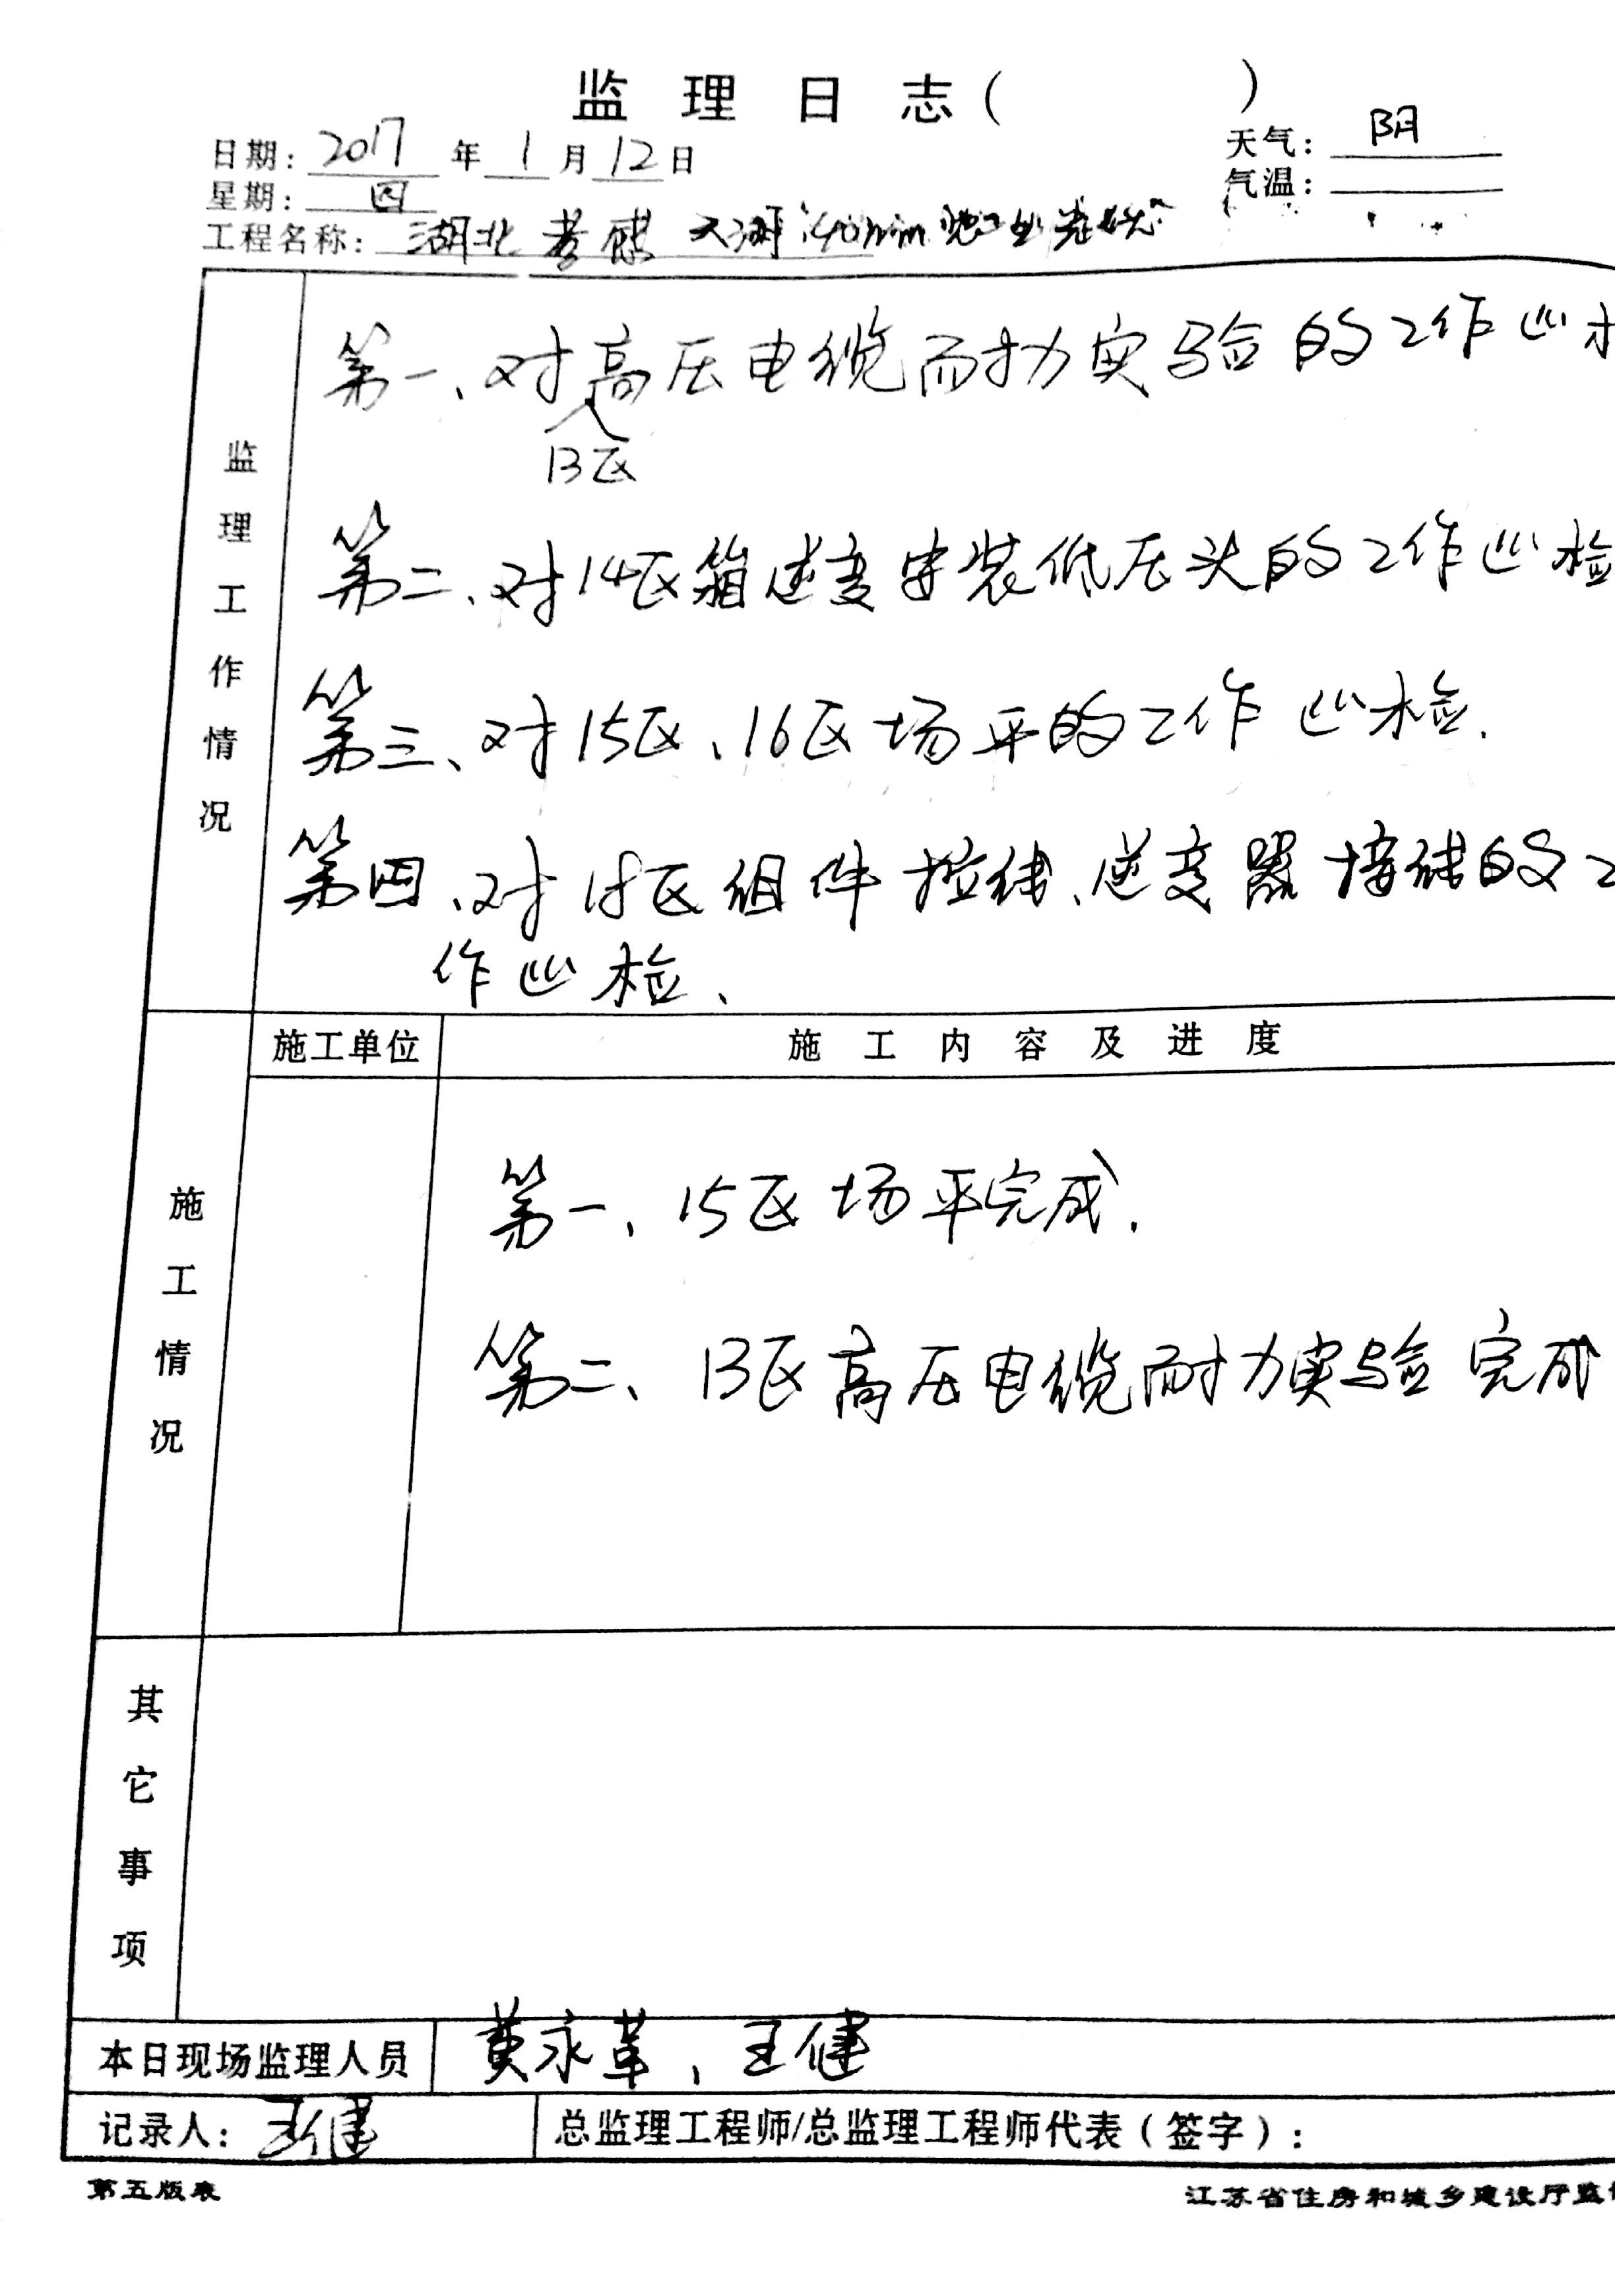 监 理 日 志 (            )
日期: 2017 年 1 月 12 日 天气: 阴
星期: 四 气温:
工程名称: 湖北孝感大湖
监理工作情况
第一、对高压电缆耐力实验的工作巡
13区
第二、对14区箱逆变安装低压头的工作巡检
第三、对15区、16区场平的工作巡检.
第四、对18区组件拉线、逆变器接线的工
作巡检、
施工情况
施工单位 施 工 内 容 及 进 度
第一、15区场平完成.
第二、13区高压电缆耐力实验完成
其它事项
本日现场监理人员 黄永革、王健
记录人: 王健 总监理工程师/总监理工程师代表(签字):
第五版表 江苏省住房和城乡建设厅监